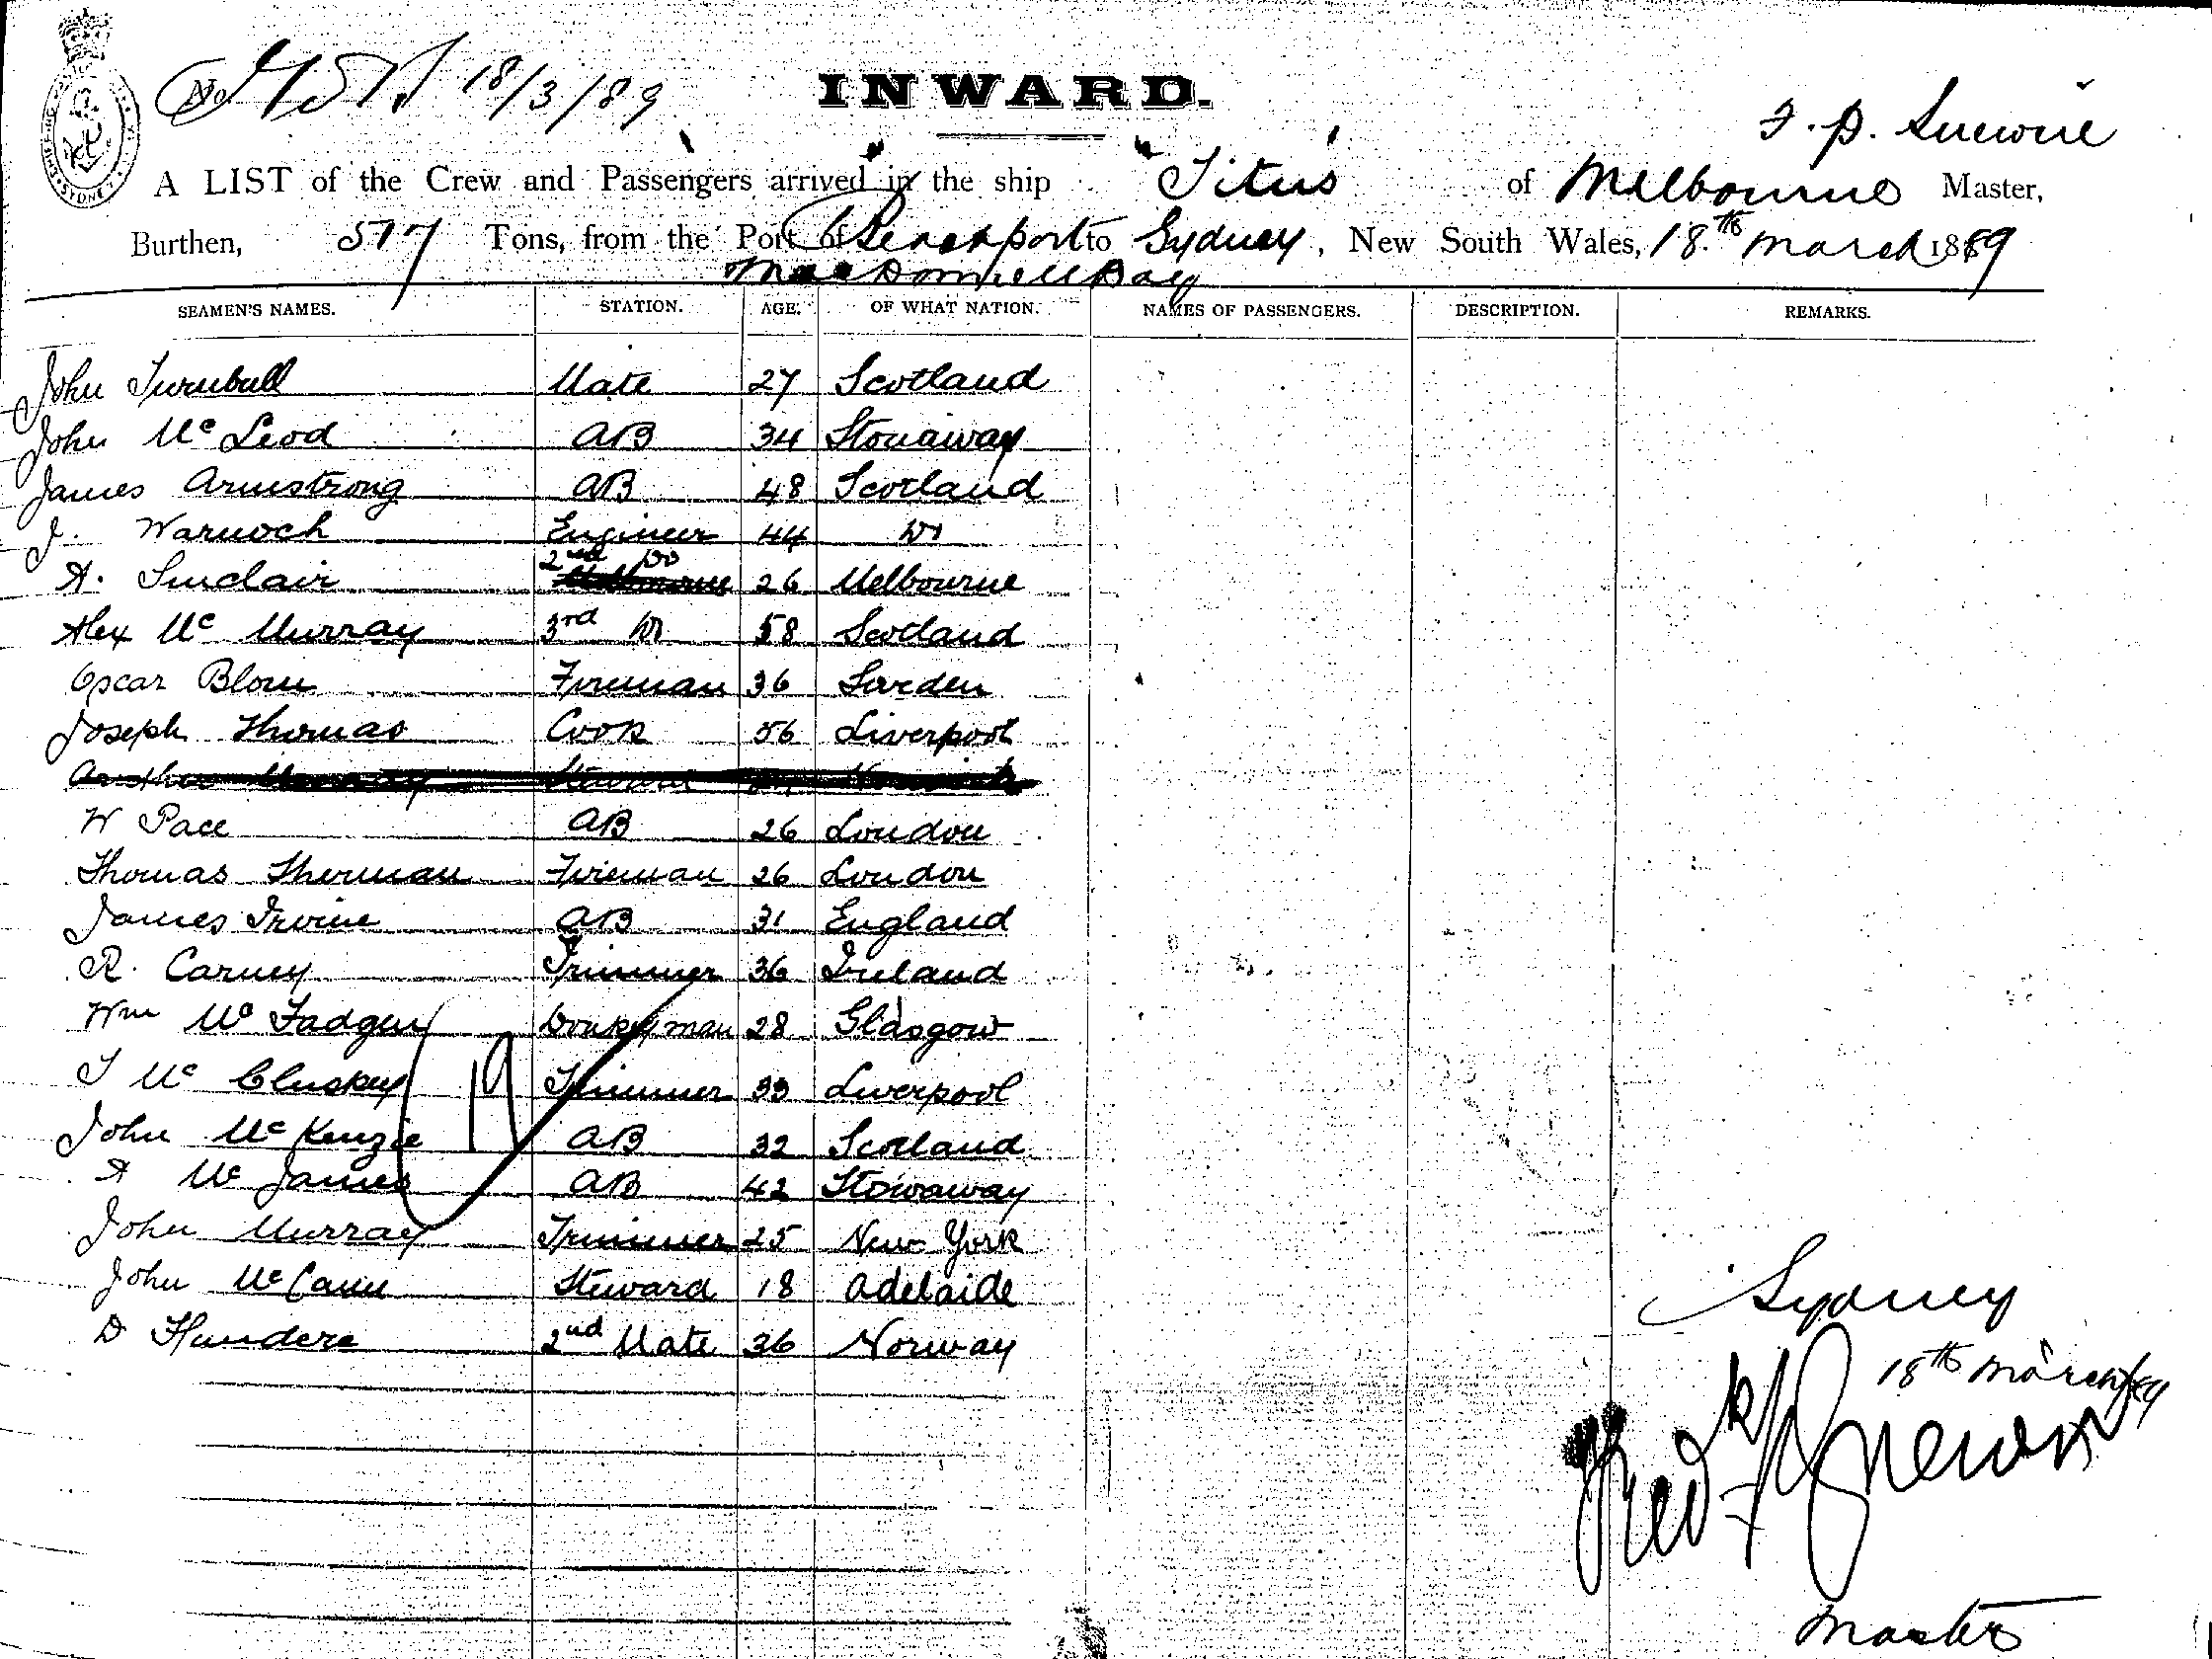 No 18/3/89
INWARD.
A LIST of the Crew and Passengers arrived in the ship "Titus" of Melbourne Master,
Burthen, 577 Tons, from the Port of to Sydney, New South Wales, 18th March 1889
MacDonnell Bay
SEAMEN'S NAMES. STATION. AGE. OF WHAT NATION. NAMES OF PASSENGERS. DESCRIPTION. REMARKS.
John Turnbull Mate 27 Scotland
John Mc Leod AB 34 Stonaway
James Armstrong AB 48 Scotland
J. Warnoch Engineer 44 Do
A. Sinclair 2nd Do 26 Melbourne
Alex Mc Murray 3rd Do 58 Scotland
Oscar Blom Fireman 36 Sweden
Joseph Thomas Cook 56 Liverpool
W Pace AB 26 London
Thomas Sherman Fireman 26 London
James Irvine AB 31 England
R. Carney Trimmer 36 Ireland
Wm Mc Fadgen Donkeyman 28 Glasgow
J Mc Cluskey Trimmer 33 Liverpool
19
John Mc Kenzie AB 32 Scotland
A Mc James AB 42 Stowaway
John Murray Trimmer 25 New York
John Mc Cann Steward 18 Adelaide
D 2nd Mate 36 Norway
Sydney
18th March/89
Master